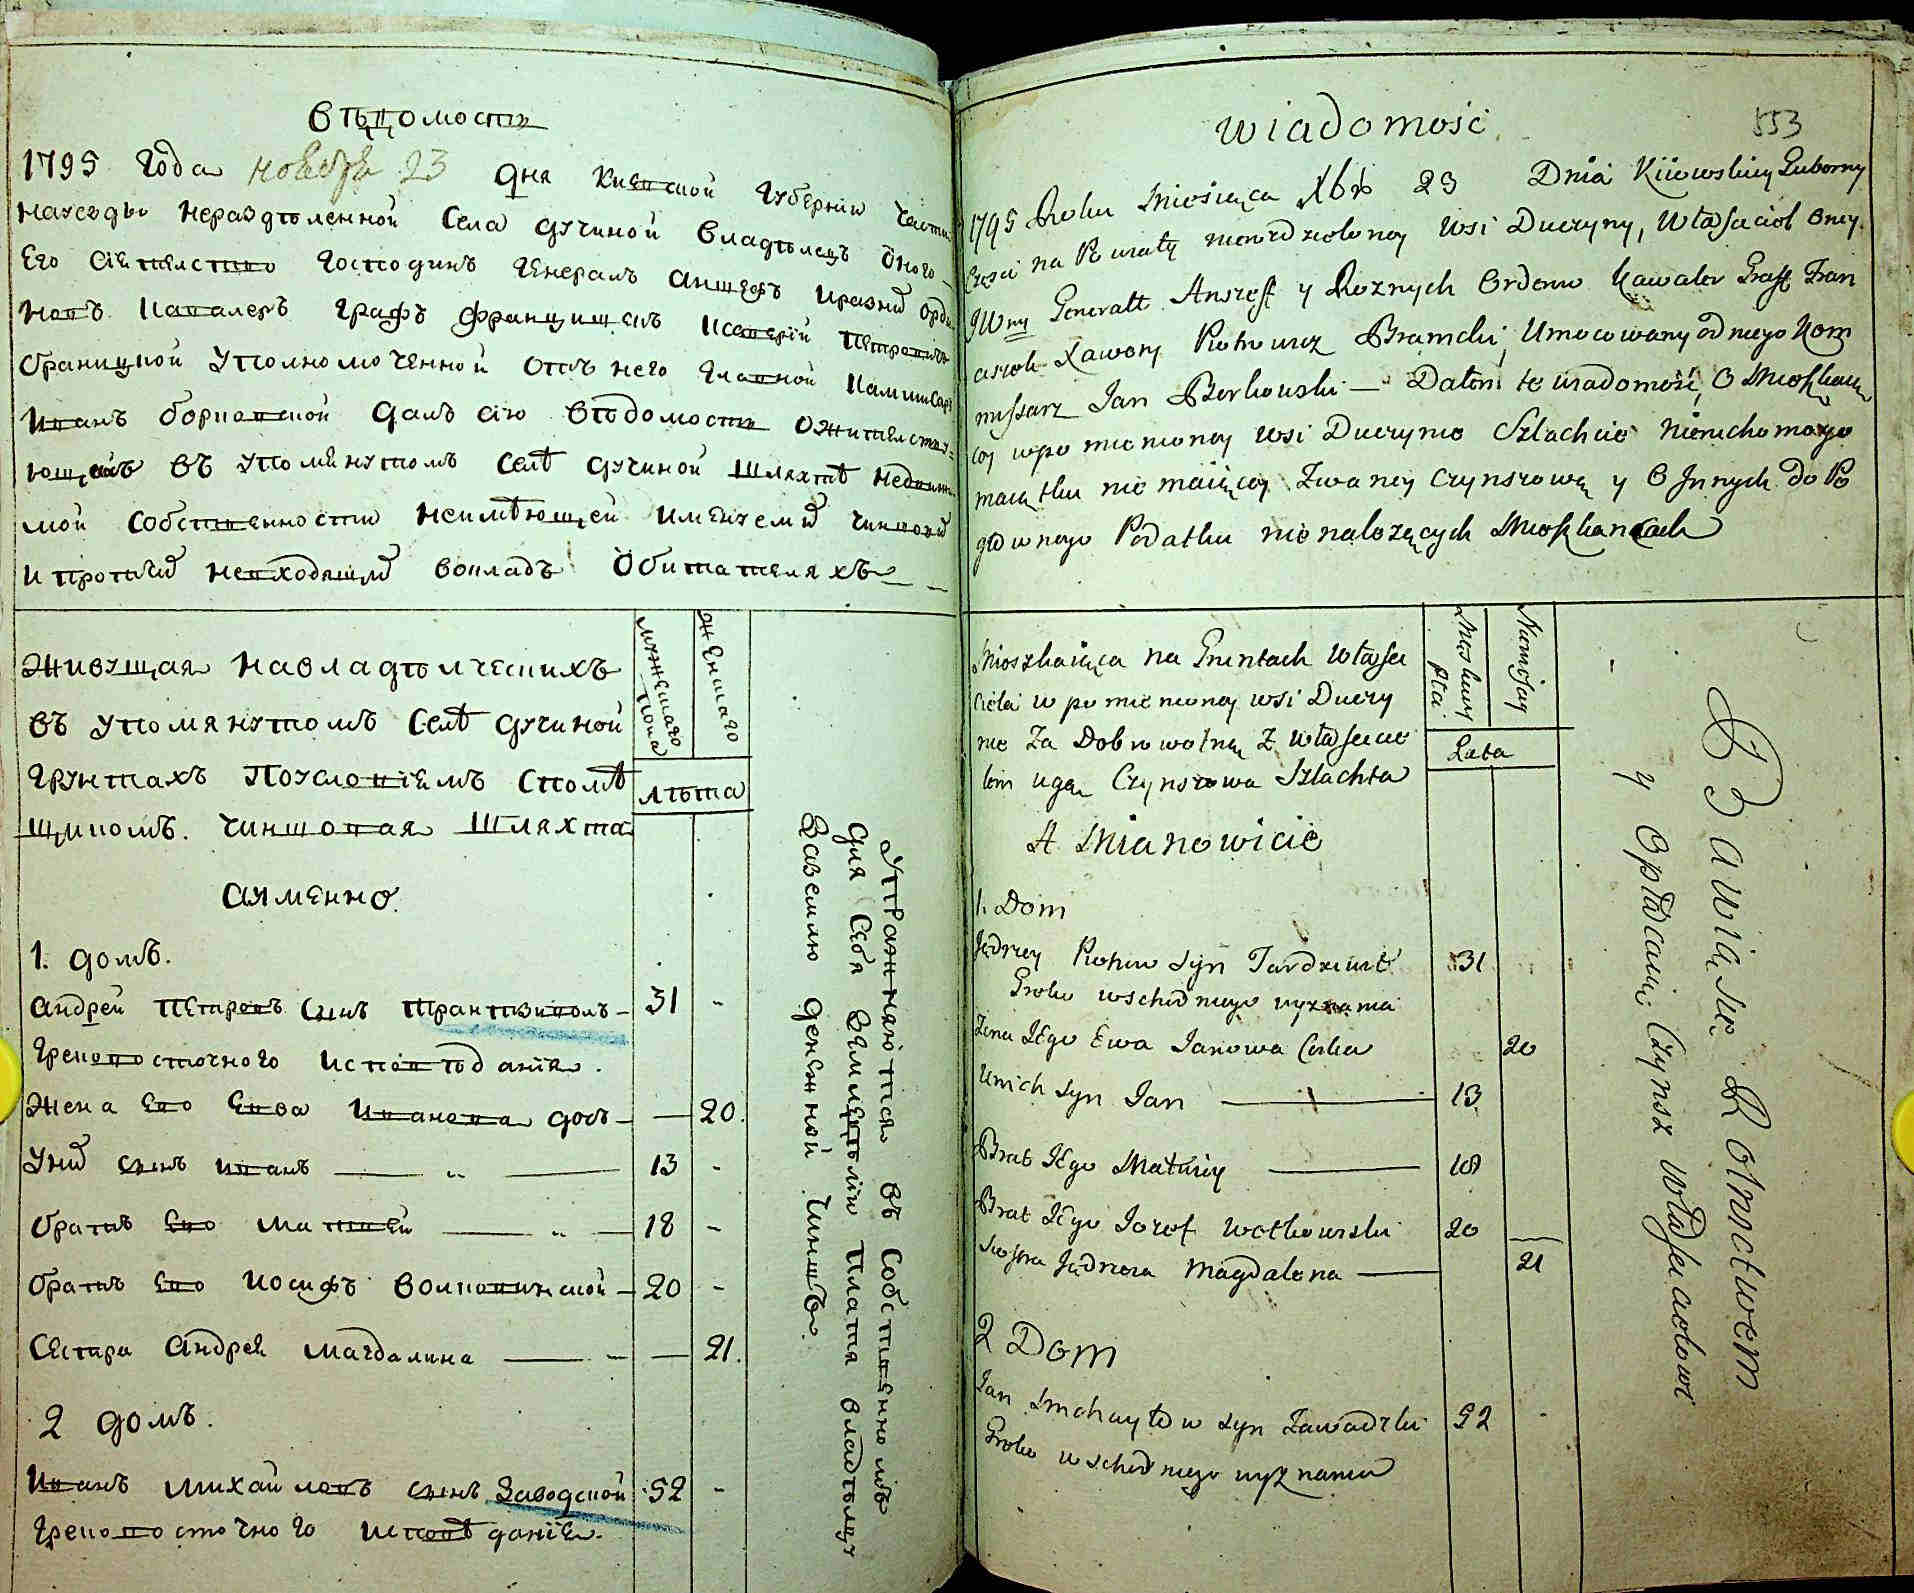 вѣдомость
1795 Года ноября 23 дня Киевской Губернии части
на уезды неразделенной Села дучиной владѣлецъ оного
Его Сиятельство Господинъ Генералъ Аншефъ и разнихъ орде
новъ Кавалеръ Графъ Францишекъ Ксаверий Петровичъ
браницкой Уполномоченной отъ него Главной Каммисаръ
Иванъ борковской далъ сию вѣдомость о жительству
ющихъ въ упомянутомъ селѣ дучиной шляхтѣ недвижи
мой собственности неимѣющей именуемихъ чиншовихъ
и протчихъ невходящихъ вокладъ обитателяхъ
живущая навладѣлческихъ
въ упомянутомъ Селѣ дучиной
грунтахъ Поусловиемъ стомѣ
щикомъ. чиншовая Шляхта
мужеска пола
женшаго
лѣта
аимено
1. домъ.
андрей петровъ сынъ 31 -
Греко восточного исповѣдания.
жена Его Евва Иванова дочь — 20.
У них сынъ иванъ — „ — 13 -
братъ Его матвей — „ — 18 -
братъ Его иосифъ волковинской 20 -
Сестра андрея магдалина — — 21.
2 домъ.
Иванъ михайловъ сынъ Заводской 52 -
Греко восточного исповѣдания.
Упражняются въ Собственномъ
для Себя Земледѣлии платя владѣлцу
Заземлю денежной чиншъ.
wiadomość
553
1795 Roku Miesiąca Xbra 23 Dnia Kiiowskiey Gubernij
Części na Powiaty nierozdzieloney wsi Duczyny, Właściciel oney
JWny Generałł Anszeff y Roznych Orderow Kawaler Graff Fran
ciszek Xawery Piotrowicz Branicki, Umocowany od niego Kom
missarz Jan Borkowski — Dałem tę wiadomość, o Mieszkaią
cey wpomienioney wsi Duczynie Szlachcie Nieruchomego
maiątku nie maiącey Zwaney Czynszową y o Innych do Po
głownego Podatku nie należących Mieszkancach
Mieszkaiąca na Gruntach właści
ciela w pomienioney wsi Duczy
nie Za Dobrowolną Z właścicie
lem ugodą Czynszowa Szlachta
Męskiey płci
Lata
A Mianowicie
1. Dom
Jędrzey Piotrow syn 31
Greko wschodniego wyznania
Zona Jego Ewa Janowa Corka 20
U nich syn Jan — 13
Brat Jego Matwiey — 18
Brat Jego Jozef Wołkowiski 20
Siostra Jędrzeia Magdalena — 21
2 Dom
Jan Michayłow syn Zawadzki 52
Greko wschodniego wyznania
Bawią się Rolnictwem
y Opłacaią Czynsz właścicielowi